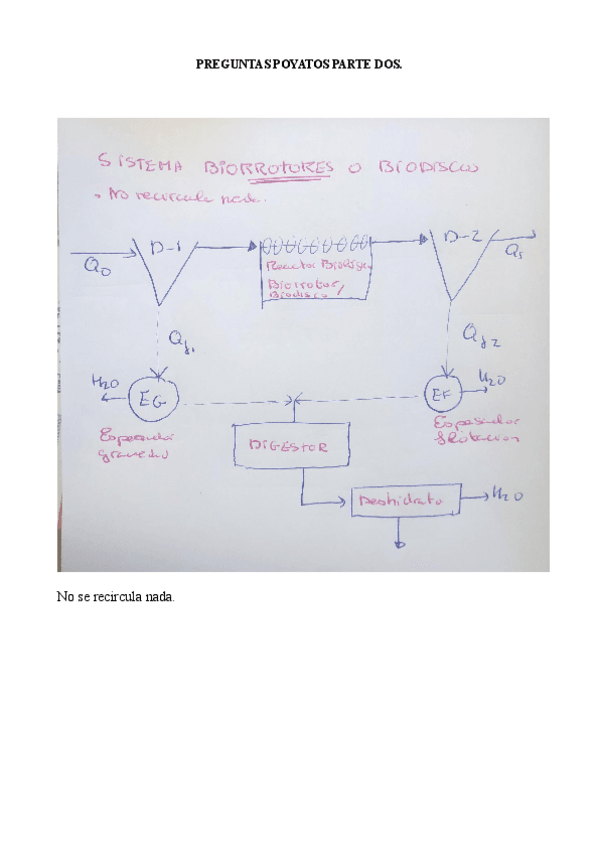 PREGUNTAS POYATOS PARTE DOS.
SISTEMA BIORROTORES O BIODISCOS
• No recircula nada.
D-1
D-2
Q0
Qs
Reactor Biológico
Biorrotor/
Biodisco
Qf1
Qf2
H2O
EG
EF
H2O
Espesador
gravedad
Espesador
flotacion
DIGESTOR
Deshidrato
H2O
No se recircula nada.